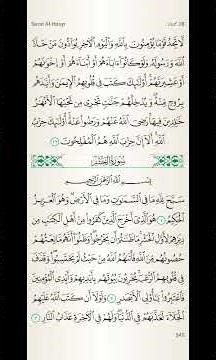 Surat Al-Hasyr
Juz' 28
لَّا تَجِدُ قَوْمًا يُؤْمِنُونَ بِٱللَّهِ وَٱلْيَوْمِ ٱلْءَاخِرِ يُوَآدُّونَ مَنْ حَآدَّ
ٱللَّهَ وَرَسُولَهُۥ وَلَوْ كَانُوٓا۟ ءَابَآءَهُمْ أَوْ أَبْنَآءَهُمْ أَوْ إِخْوَٰنَهُمْ
أَوْ عَشِيرَتَهُمْ ۚ أُو۟لَٰٓئِكَ كَتَبَ فِى قُلُوبِهِمُ ٱلْإِيمَٰنَ وَأَيَّدَهُم
بِرُوحٍ مِّنْهُ ۖ وَيُدْخِلُهُمْ جَنَّٰتٍ تَجْرِى مِن تَحْتِهَا ٱلْأَنْهَٰرُ
خَٰلِدِينَ فِيهَا ۚ رَضِىَ ٱللَّهُ عَنْهُمْ وَرَضُوا۟ عَنْهُ ۚ أُو۟لَٰٓئِكَ حِزْبُ
ٱللَّهِ ۚ أَلَآ إِنَّ حِزْبَ ٱللَّهِ هُمُ ٱلْمُفْلِحُونَ ٢٢
سُورَةُ الحَشْرِ
بِسْمِ ٱللَّهِ ٱلرَّحْمَٰنِ ٱلرَّحِيمِ
سَبَّحَ لِلَّهِ مَا فِى ٱلسَّمَٰوَٰتِ وَمَا فِى ٱلْأَرْضِ ۖ وَهُوَ ٱلْعَزِيزُ
ٱلْحَكِيمُ ١ هُوَ ٱلَّذِىٓ أَخْرَجَ ٱلَّذِينَ كَفَرُوا۟ مِنْ أَهْلِ ٱلْكِتَٰبِ مِن
دِيَٰرِهِمْ لِأَوَّلِ ٱلْحَشْرِ ۚ مَا ظَنَنتُمْ أَن يَخْرُجُوا۟ ۖ وَظَنُّوٓا۟ أَنَّهُم مَّانِعَتُهُمْ
حُصُونُهُم مِّنَ ٱللَّهِ فَأَتَىٰهُمُ ٱللَّهُ مِنْ حَيْثُ لَمْ يَحْتَسِبُوا۟ ۖ وَقَذَفَ
فِى قُلُوبِهِمُ ٱلرُّعْبَ ۚ يُخْرِبُونَ بُيُوتَهُم بِأَيْدِيهِمْ وَأَيْدِى ٱلْمُؤْمِنِينَ
فَٱعْتَبِرُوا۟ يَٰٓأُو۟لِى ٱلْأَبْصَٰرِ ٢ وَلَوْلَآ أَن كَتَبَ ٱللَّهُ عَلَيْهِمُ
ٱلْجَلَآءَ لَعَذَّبَهُمْ فِى ٱلدُّنْيَا ۖ وَلَهُمْ فِى ٱلْءَاخِرَةِ عَذَابُ ٱلنَّارِ ٣
545